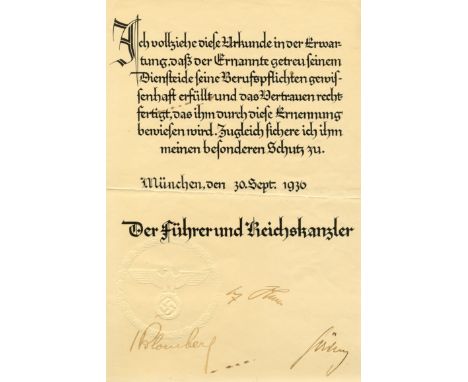 Ich vollziehe diese Urkunde in der Erwar-
tung, daß der Ernannte getreu seinem
Diensteide seine Berufspflichten gewis-
senhaft erfüllt und das Vertrauen recht-
fertigt, das ihm durch diese Ernennung
bewiesen wird. Zugleich sichere ich ihm
meinen besonderen Schutz zu.
München, den 30. Sept. 1936
Der Führer und Reichskanzler
vBlomberg